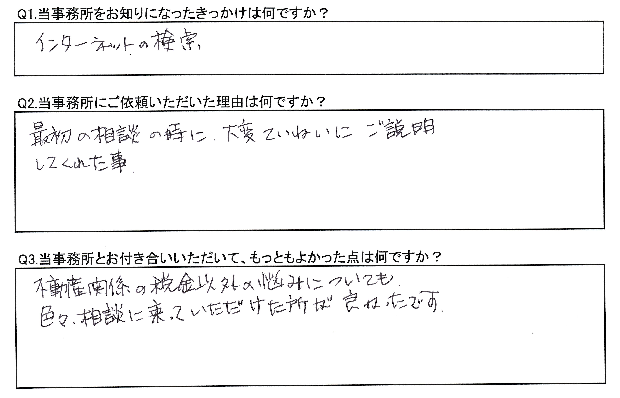 Q1.当事務所をお知りになったきっかけは何ですか？
インターネットの検索
Q2.当事務所にご依頼いただいた理由は何ですか？
最初の相談の時に、大変ていねいにご説明
してくれた事
Q3.当事務所とお付き合いいただいて、もっともよかった点は何ですか？
不動産関係の税金以外の悩みについても
色々、相談に乗っていただけた所が良かったです。